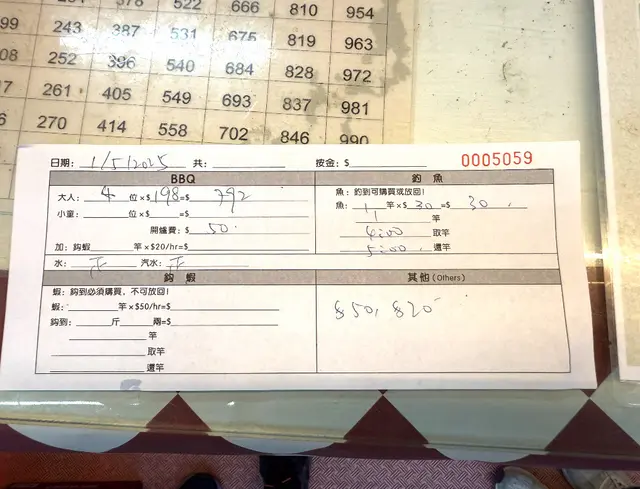 234 378 522 666 810 954
99 243 387 531 675 819 963
08 252 396 540 684 828 972
17 261 405 549 693 837 981
6 270 414 558 702 846 990
日期: 1/5/2025 共: 按金: $ 0005059
BBQ
大人: 4 位×$ 198 =$ 792
小童: 位×$ =$
開爐費: $ 50
加: 鈎蝦 竿×$20/hr=$
水: 正 汽水: 正
鈎 蝦
蝦: 鈎到必須購買, 不可放回!
蝦: 竿×$50/hr=$
鈎到: 斤 兩=$
竿
取竿
還竿
釣 魚
魚: 釣到可購買或放回!
魚: 1 竿×$ 30 =$ 30
11 竿
4:00 取竿
5:00 還竿
其他(Others)
$50, $20